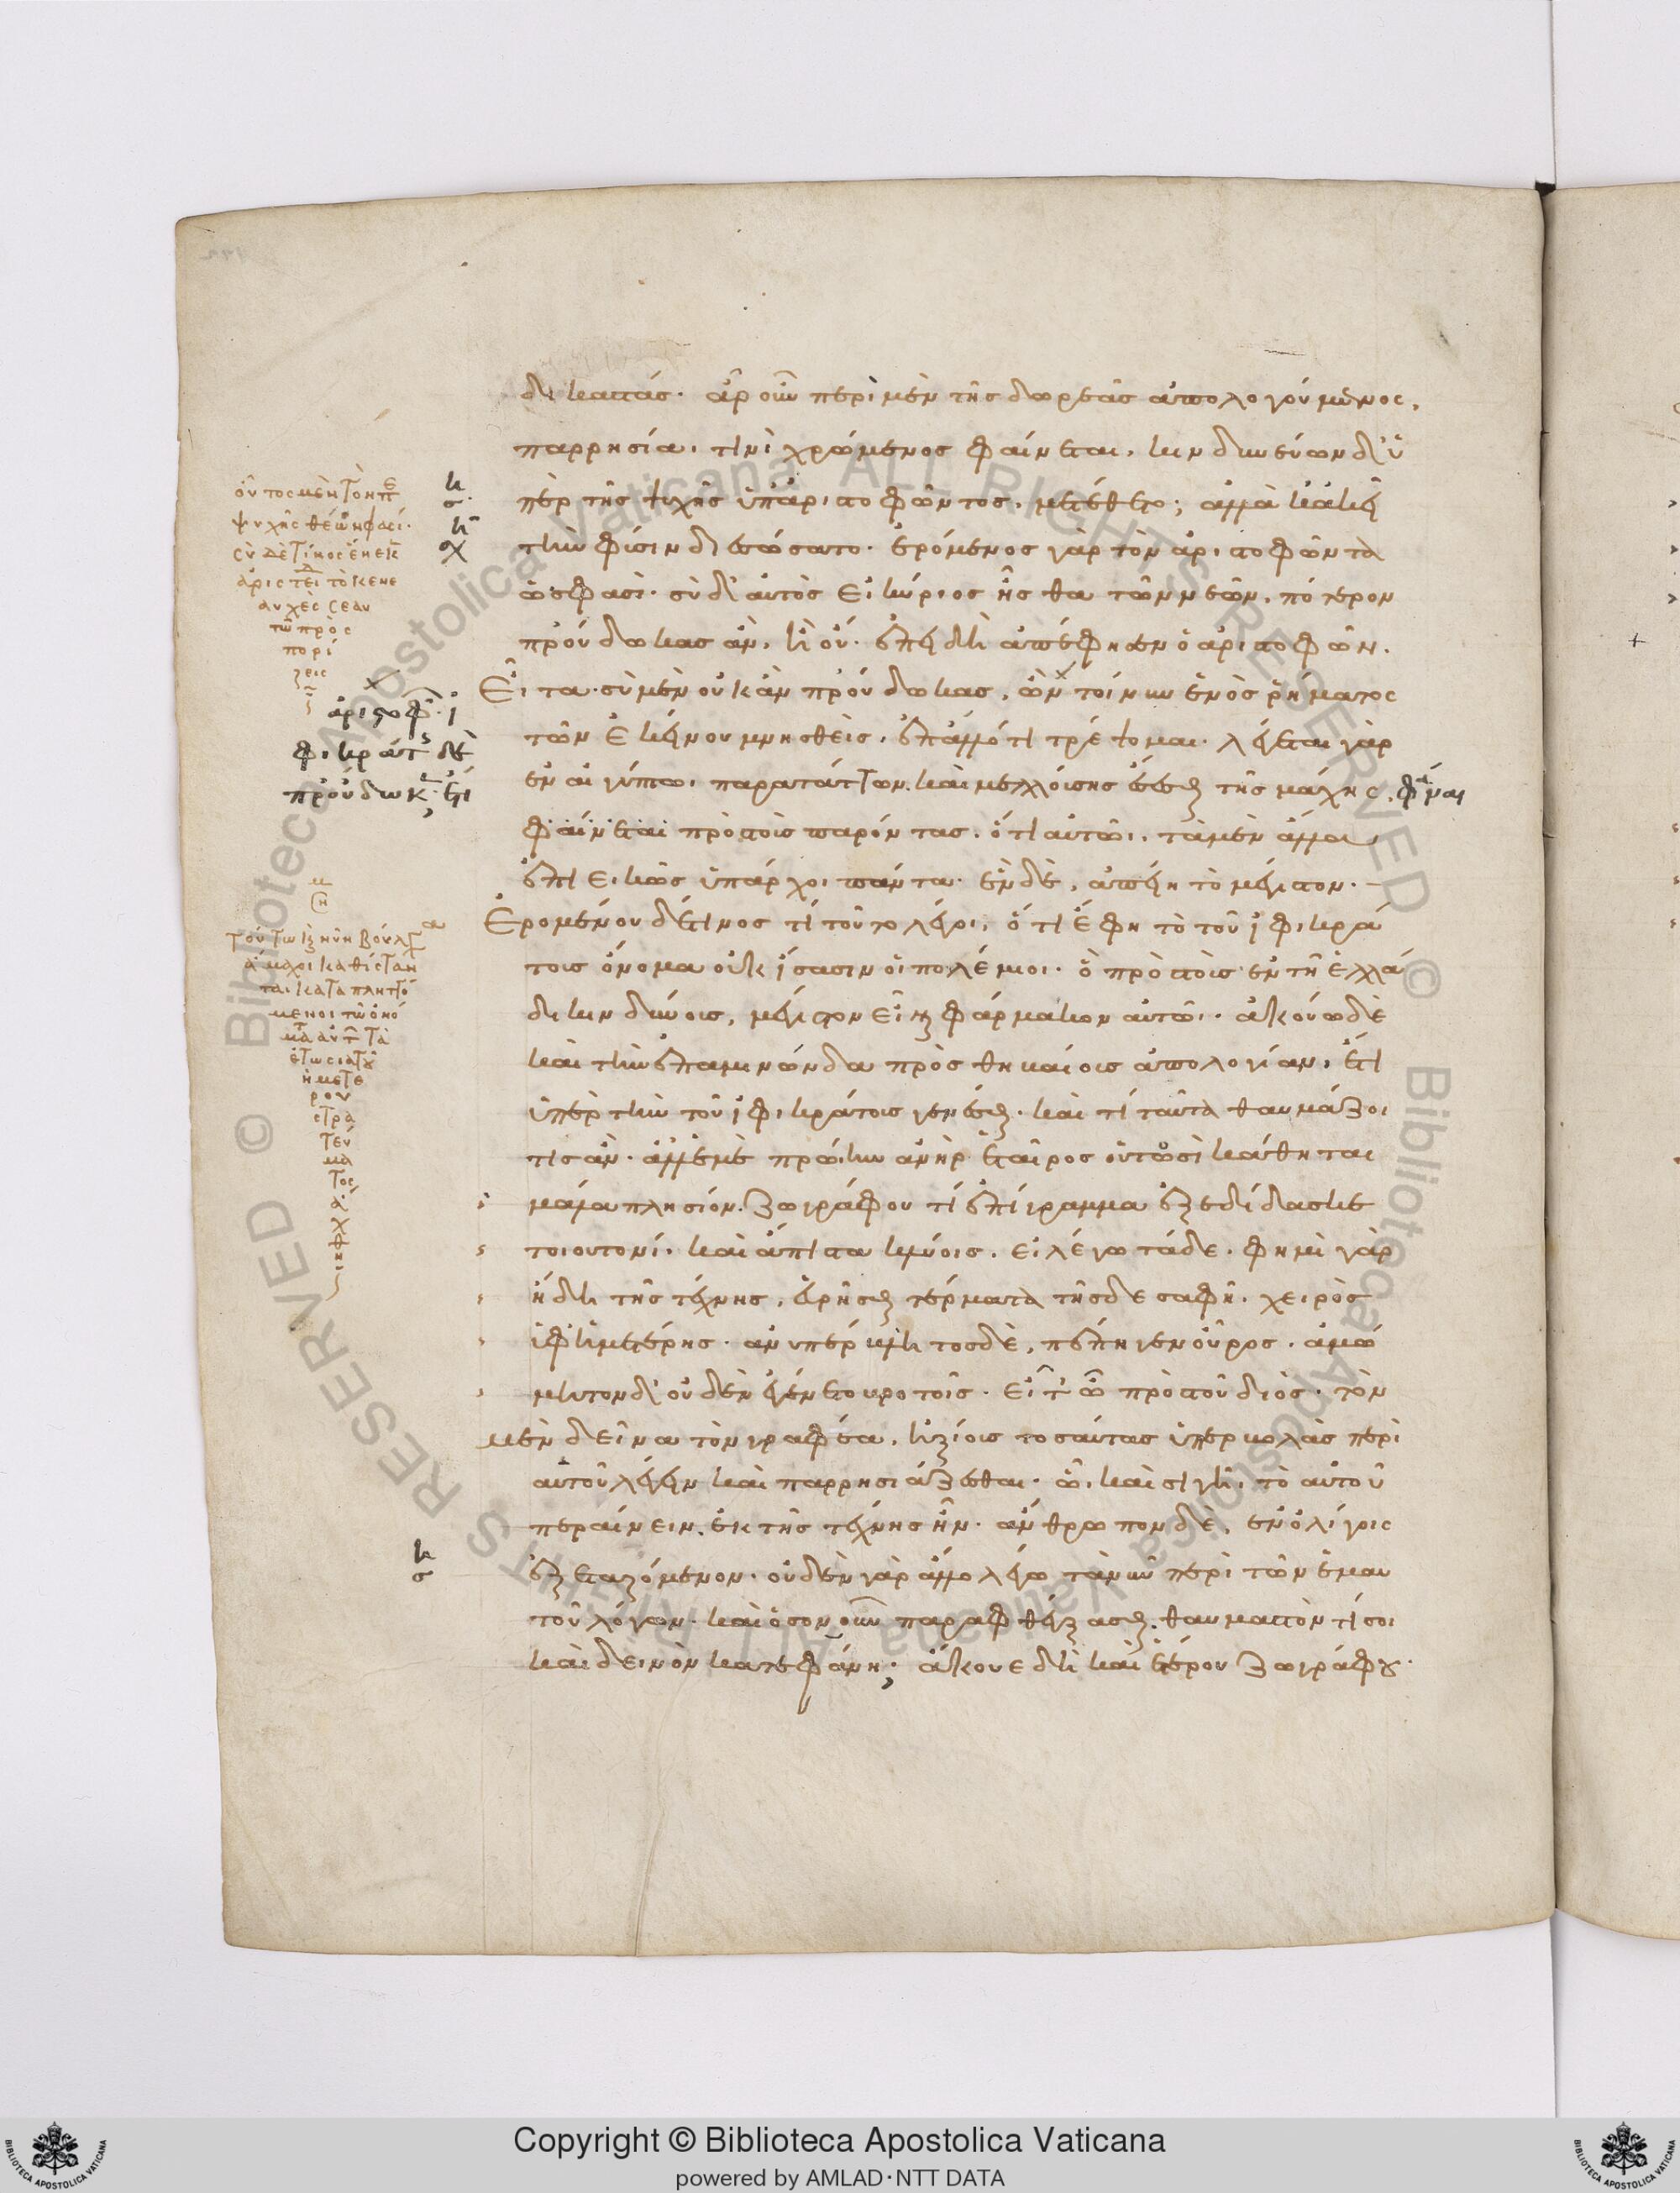 δικαστάς. ἆρ' οὖν περὶ μὲν τῆς δωρεᾶς ἀπολογούμενος,
παρρησίαι τινὶ χρώμενος φαίνεται, κινδυνεύων δ' ὑ
πὲρ τῆς ψυχῆς ὑπ' ἀριστοφῶντος, μετέθετο; ἀλλὰ κἀκεῖ
τὴν φύσιν διεσώσατο. ἐρόμενος γὰρ τὸν ἀριστοφῶντα
ὥς φασι. σὺ δ' αὐτὸς εἰ κύριος ἦσθα τῶν νεῶν, πότερον
προύδωκας ἂν, ἢ οὔ. ἐπεὶ δὴ ἀπέφησεν ὁ ἀριστοφῶν.
Εἶτα σὺ μὲν οὐκ ἂν προύδωκας, ὧν τοίνυν ἑνὸς ῥήματος
τῶν ἐκείνου μνησθεὶς, ἐπ' ἄλλό τι τρέψομαι. λέγεται γὰρ
ἐν αἰγύπτωι παρατάττων καὶ μελλούσης ἔσεσθαι τῆς μάχης,
φαίνεται πρὸς τοὺς παρόντας, ὅτι αὐτῶι, τὰ μὲν ἄλλα
ἐπιεικῶς ὑπάρχοι πάντα. ἓν δὲ, ἀπείη τὸ μέγιστον.
Ἐρομένου δέ τινος τί τοῦτο λέγοι, ὅτι ἔφη τὸ τοῦ ἰφικρά
τους ὄνομα οὐκ ἴσασιν οἱ πολέμιοι. ὃ πρὸς τοὺς ἐν τῇ ἑλλά
δι κινδύνους, μέγιστον εἶναι φάρμακον αὐτῶι. ἀκούω δὲ
καὶ τὴν ἐπαμινώνδα πρὸς θηβαίους ἀπολογίαν, ἔτι
ὑπὲρ τὴν τοῦ ἰφικράτους γενέσθαι. καὶ τί ταῦτα θαυμάζοι
τις ἄν. ἀλλ' ἐμὲ πρώιην ἀνὴρ ἑταῖρος οὑτοσὶ κάθηται
μάλα πλησίον, ζωγράφου τί ἐπίγραμμα ἐξεδίδασκε
τοιουτονί. καὶ ἄπιστα κλύουσι, εἰ λέγω τάδε. φημὶ γὰρ
ἤδη τῆς τέχνης, εὑρῆσθαι τέρματα τῆσδε σαφῆ. χειρὸς
ὑφ' ἡμετέρης. ἀνυπέρβλητος δὲ, πέπηγεν οὖρος. ἀμώ
μητον δ' οὐδὲν ἐγένετο βροτοῖς. εἶτ' ὦ πρὸς τοῦ διός. τὸν
μὲν δεῖνα τὸν γραφέα, ἠξίους τοσαύτας ὑπερβολὰς περὶ
αὑτοῦ λέγειν καὶ παρρησιάζεσθαι. ὧι καὶ σιγῇ, τὸ αὑτοῦ
περαίνειν, ἐκ τῆς τέχνης ἦν. ἄνθρωπον δὲ, ἐν ὀλίγοις
ἐξεταζόμενον. οὐδὲν γὰρ ἄλλο λέγω τανῦν περὶ τῶν ἐμαυ
τοῦ λόγων. καὶ ὅσον οὖν παραφθέγξασθαι, θαυμαστὸν τί σοι
καὶ δεινὸν κατεφάνη; ἄκουε δὴ καὶ ἑτέρου ζωγράφου.
φάναι
οὗτος μὲν τὸν π
ψυχῆς θέων φασί.
σὺ δὲ τίνος ἕνεκ
ἀριστείδ τὸ κενε
αυχὲς σεαυ
τῶ πρὸς
πορί
ζεις
ἀριστοφ. ἰ
φικράτ δὲ
προύδωκ. ἔτι
τούτω καὶ νῦν βούλετ
ἅμαχοι καθίσταν
ται καταπληττό
μενοι τῶ ὀνό
ματι αὐτ τὰ
ἡμετέ
ρου
στρα
τεύ
μα
τος
ἀ
χ
θη